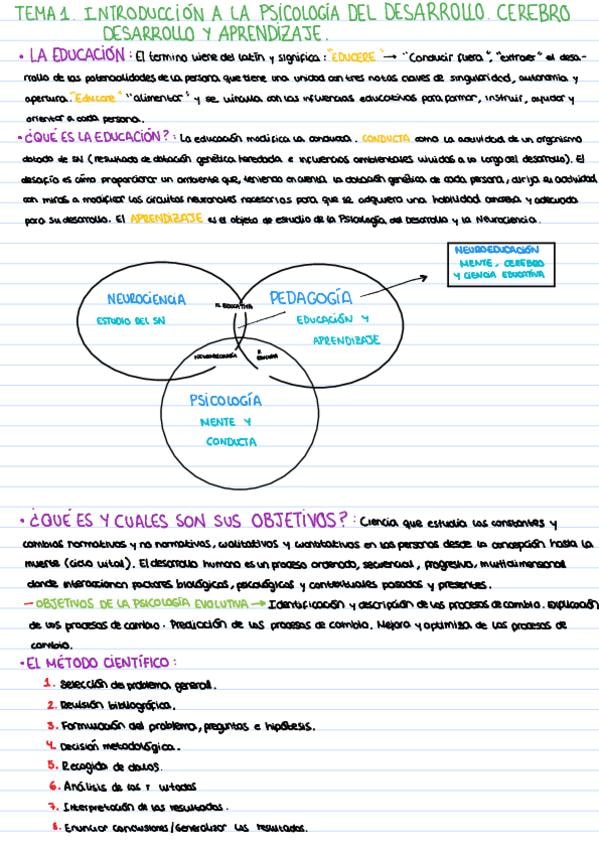 TEMA 1. INTRODUCCIÓN A LA PSICOLOGÍA DEL DESARROLLO. CEREBRO
DESARROLLO Y APRENDIZAJE.
• LA EDUCACIÓN: El termino viene del latín y significa: "EDUCERE" → "Conducir fuera", "extraer" el desa-
rrollo de las potencialidades de la persona que tiene una unidad con tres notas claves de singularidad, autonomía y
apertura. "Educare" "alimentar" y se vincula con las influencias educativas para formar, instruir, ayudar y
orientar a cada persona.
• ¿QUÉ ES LA EDUCACIÓN?: La educación modifica la conducta. CONDUCTA como la actividad de un organismo
dotado de SN (resultado de dotación genética heredada e influencias ambientales vividas a lo largo del desarrollo). El
desafío es cómo proporcionar un ambiente que, teniendo en cuenta la dotación genética de cada persona, dirija su actividad
con miras a modificar los circuitos neuronales necesarios para que se adquiera una habilidad concreta y adecuada
para su desarrollo. El APRENDIZAJE es el objeto de estudio de la Psicología del Desarrollo y la Neurociencia.
NEUROEDUCACIÓN
MENTE, CEREBRO
Y CIENCIA EDUCATIVA
NEUROCIENCIA
ESTUDIO DEL SN
PEDAGOGÍA
EDUCACIÓN Y
APRENDIZAJE
PSICOLOGÍA
MENTE Y
CONDUCTA
• ¿QUÉ ES Y CUALES SON SUS OBJETIVOS?: Ciencia que estudia las constantes y
cambios normativos y no normativos, cualitativos y cuantitativos en las personas desde la concepción hasta la
muerte (ciclo vital). El desarrollo humano es un proceso ordenado, secuencial, progresivo, multidimensional
donde interaccionan factores biológicas, psicológicas y contextuales pasados y presentes.
– OBJETIVOS DE LA PSICOLOGÍA EVOLUTIVA → Identificación y descripción de los procesos de cambio. Explicación
de los procesos de cambio. Predicción de los procesos de cambio. Mejora y optimiza de los procesos de
cambio.
• EL MÉTODO CIENTÍFICO:
1. Selección de problema general.
2. Revisión bibliográfica.
3. Formulación del problema, preguntas e hipótesis.
4. Decisión metodológica.
5. Recogida de datos.
6. Análisis de los r ultados
7. Interpretación de los resultados.
8. Enunciar conclusiones/Generalizar los resultados.